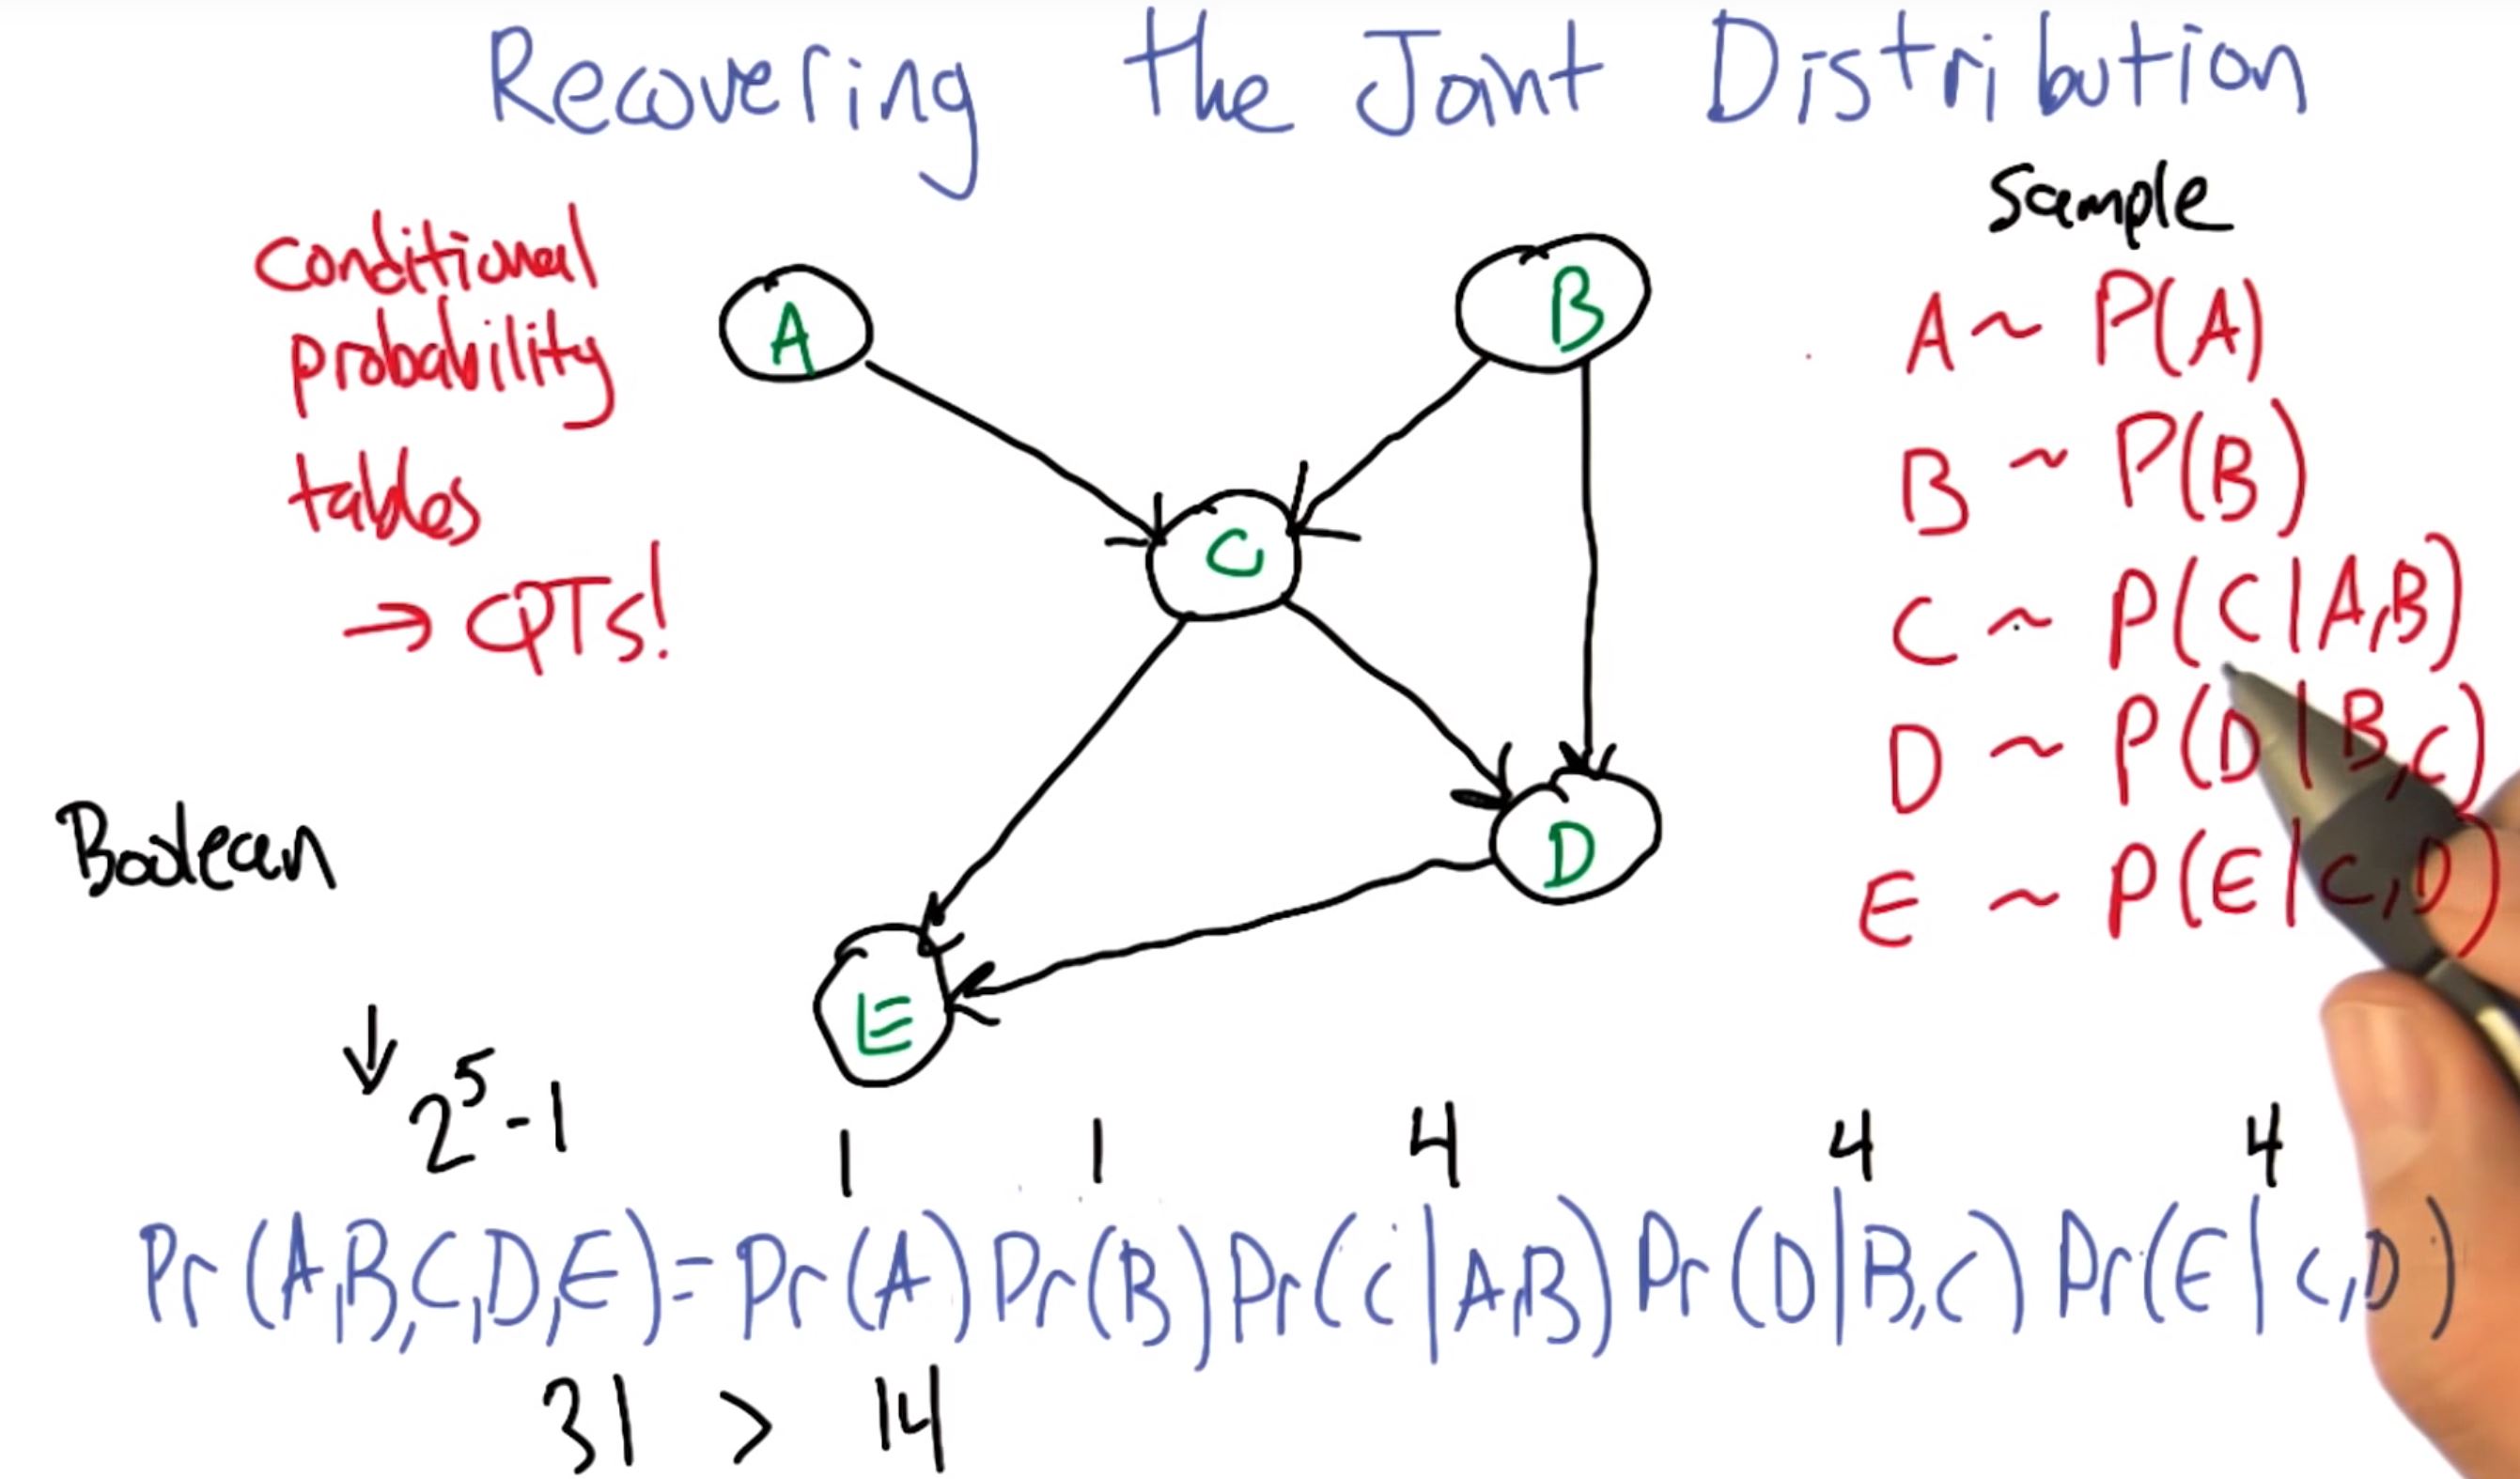 Recovering the Joint Distribution
Sample
conditional
probability
tables
→ CPTs!
A
B
C
D
E
A ~ P(A)
B ~ P(B)
C ~ P(C|A,B)
D ~ P(D|B,C)
E ~ P(E|C,D)
Boolean
↓ 2⁵-1
1 1 4 4 4
Pr(A,B,C,D,E)=Pr(A)Pr(B)Pr(C|A,B)Pr(D|B,C)Pr(E|C,D)
31 > 14